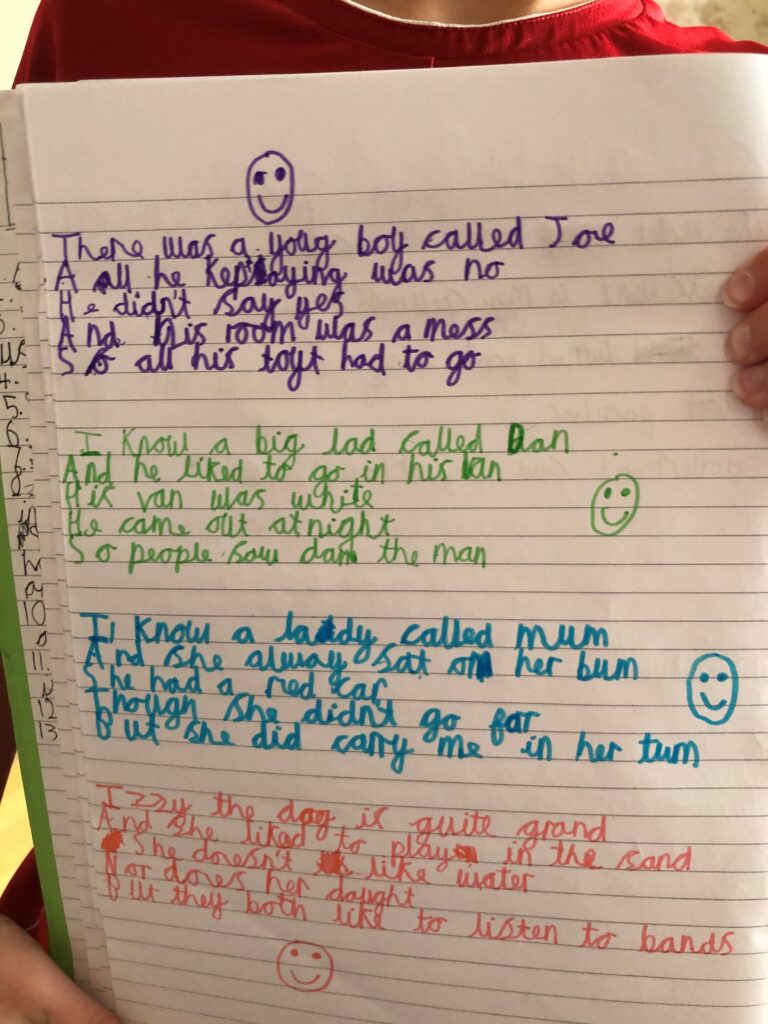 There was a youg boy called Joe
A all he kept saying was no
He didn't say yes
And his room was a mess
So all his toyt had to go
I know a big lad called Dan
And he liked to go in his van
His van was white
He came out at night
So people saw dan the man
I know a laddy called mum
And she alway sat on her bum
She had a red car
Though she didn't go far
But she did carry me in her tum
Izzy the dog is quite grand
And she liked to play in the sand
She doesn't like water
Nor dores her daught
But they both like to listen to bands
4.
5.
6.
7.
8.
10
11
12
13